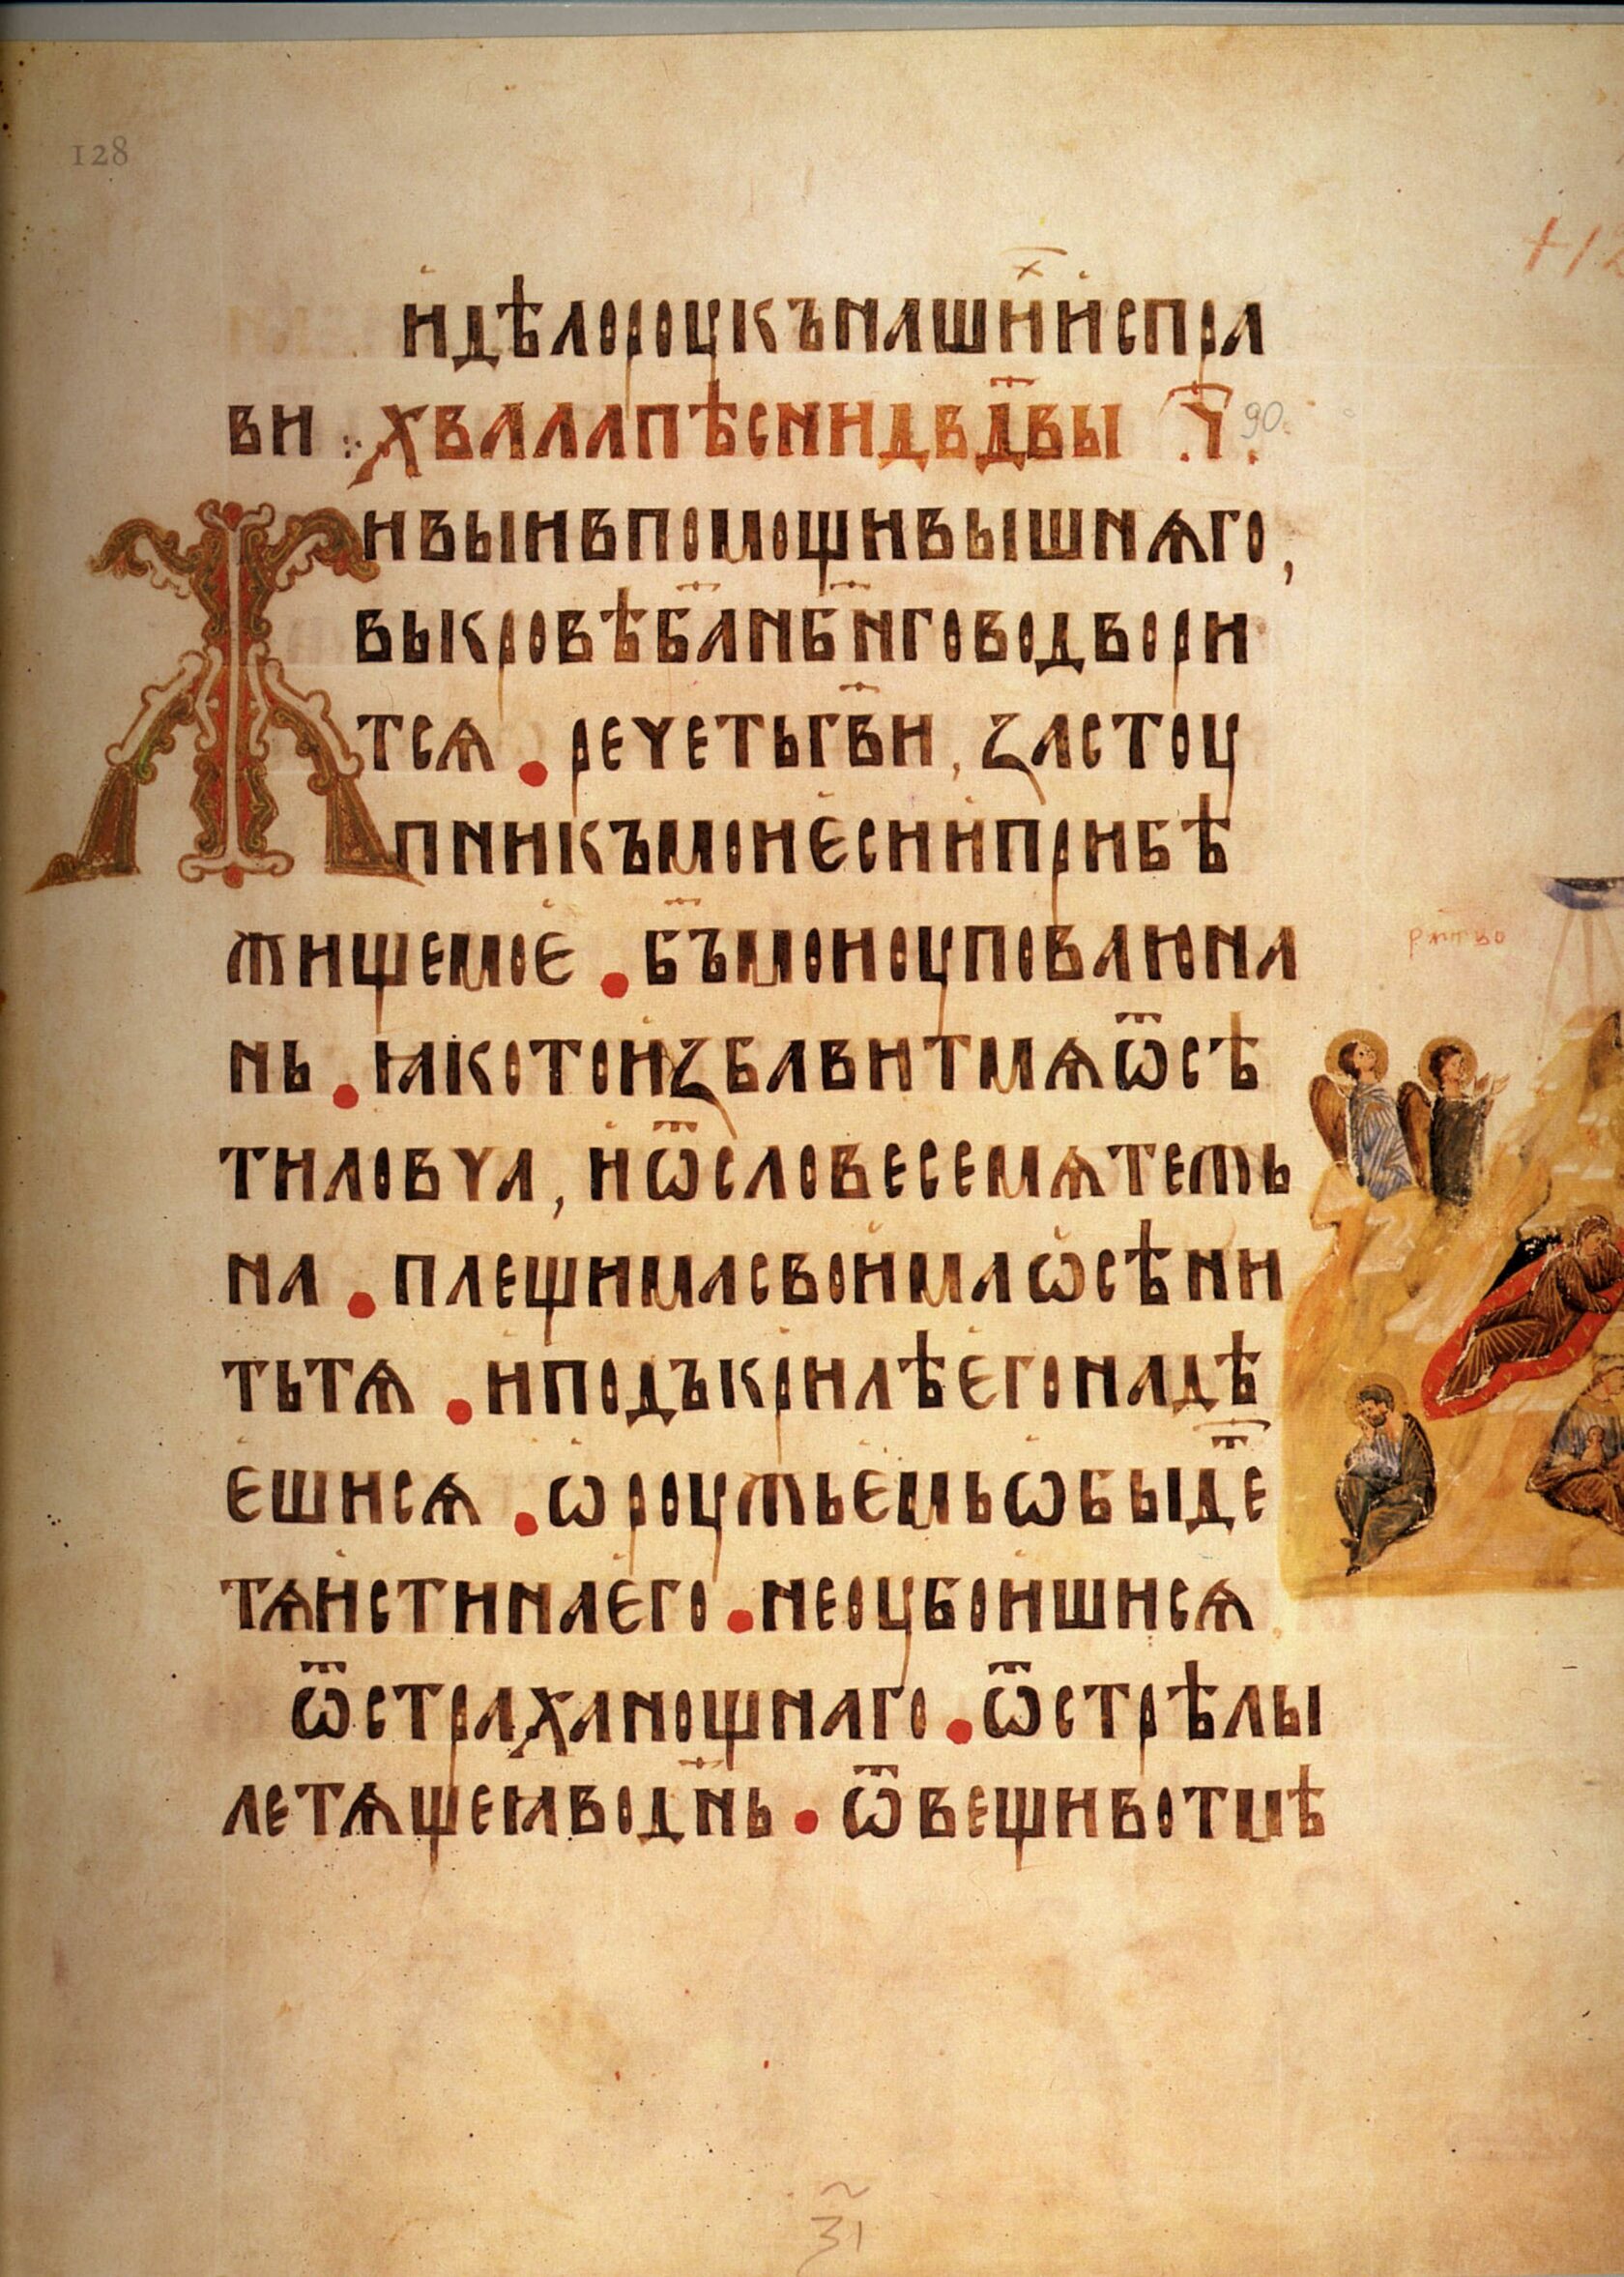 128
и҆дѣлороукънашиⷯи҆спра
ви ⁘ хвалапѣснидв҃двы .Ҁ҃. 90
Живыивпомощивышнѧго,
вькровѣб҃анб҃нговодвори
тсѧ • речетьгв҃и, застоу
пникъмоиѥсии҆прибѣ
жищемоѥ • б҃ъмоиоуповаюна
нь • ꙗкотоизбавитмѧѿсѣ
тиловча, и҆ѿсловесемѧтежь
на • плещимасвоимаѡсѣни
тьтѧ • и҆подъкрилѣѥгонадѣ
ѥшисѧ • ѡроужьѥмьѡбыде҃
тѧи҆стинаѥго • неоубоишисѧ
ѿстраханощнаго • ѿстрѣлы
летѧщеꙗводн҃ь • ѿвещивотмѣ
рж҃тво
31